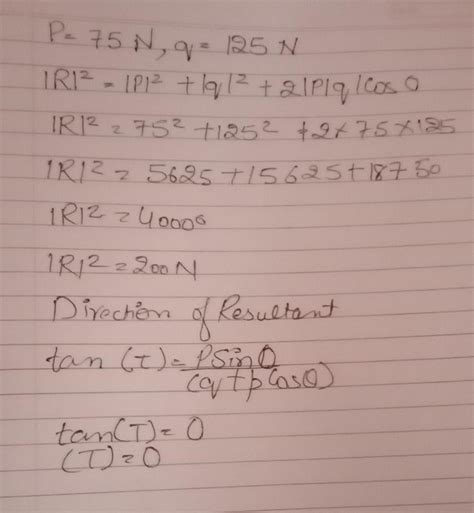 P = 75 N, q = 125 N
|R|² = |P|² + |q|² + 2|P|q|Cos θ
|R|² = 75² + 125² + 2 × 75 × 125
|R|² = 5625 + 15625 + 18750
|R|² = 40000
|R|² = 200 N
Direction of Resultant
tan (T) = PSinθ
(q + pCosθ)
tan(T) = 0
(T) = 0